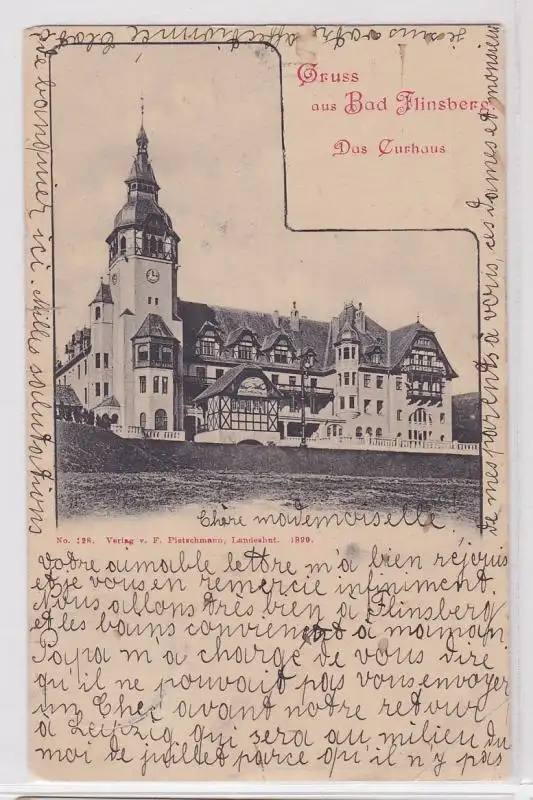 Gruss
aus Bad Flinsberg.
Das Curhaus
No. 128. Verlag v. F. Pietschmann, Landeshut. 1899.
Chère mademoiselle
Votre aimable lettre m'a bien réjouis
et je vous en remercie infiniment.
Nous allons très bien à Flinsberg
et les bains conviennent à maman.
Papa m'a chargé de vous dire
qu'il ne pouvait pas vous envoyer
un Chef avant notre retour
à Leipzig qui sera au milieu du
moi de juillet parce qu'il n'y pas
de banquier ici. Milles salutations
de mes parents à vous, ces dames et monsieur
je suis votre affectionnée